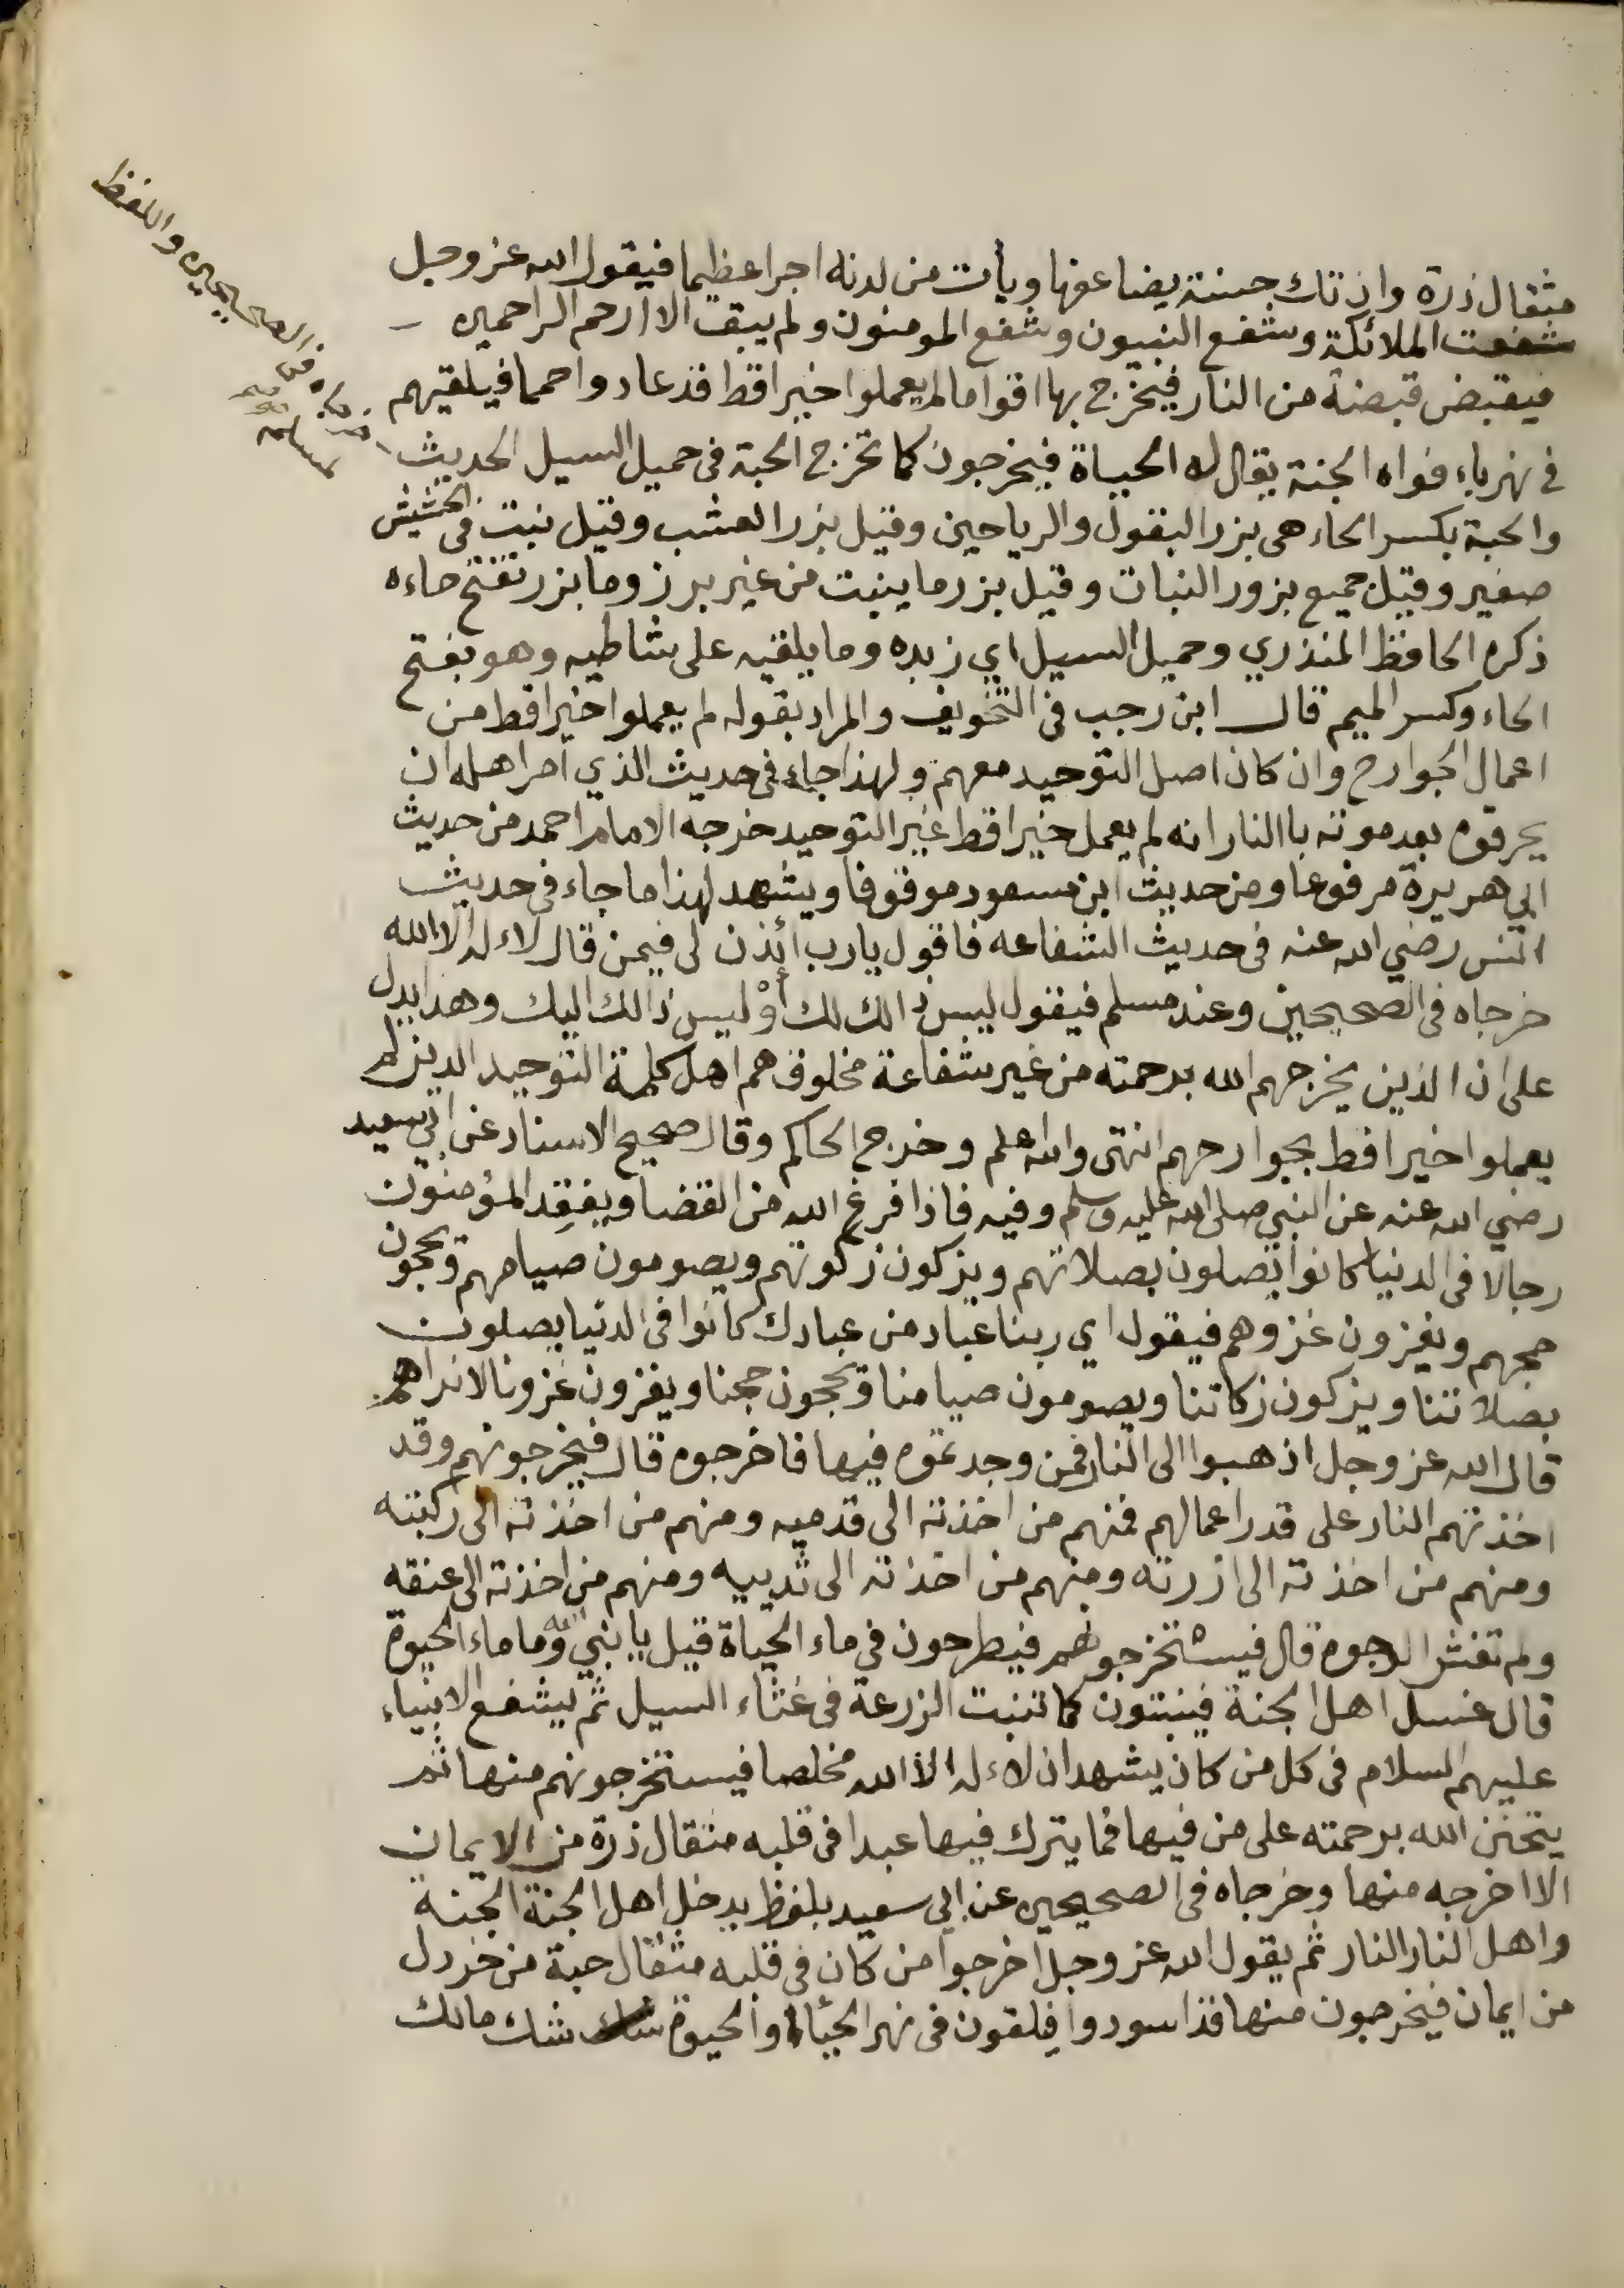 مثقال ذرة وان تك حسنة يضاعفها ويأت من لدنه اجرا عظيما فيقول الله عز وجل
شفعت الملائكة وشفع النبيون وشفع المومنون ولم يبق الا ارحم الراحمين
فيقبض قبضة من النار فيخرج بها اقواما لم يعملوا خيرا قط قد عادوا حمما فيلقيهم
في نهر باءفواه الجنة يقال له الحياة فيخرجون كما تخرج الحبة فى حميل السيل الحديث
خرجاه فى الصحيحين واللفظ
لمسلم
والحبة بكسر الحاء هى بزر البقول والرياحين وقيل بزر العشب وقيل نبت فى الحشيش
صغير وقيل جميع بزور النبات وقيل بزر ما ينبت من غير برز وما بزر تفتح حاءه
ذكره الحافظ المنذري وحميل السيل اي زبده وما يلقيه على شاطيه وهو بفتح
الحاء وكسر الميم قال ابن رجب فى التخويف والمراد بقوله لم يعملوا خيرا قط من
اعمال الجوارح وان كان اصل التوحيد معهم ولهذا جاء فى حديث الذي امر اهله ان
يحرقوه بعد موته باالنار انه لم يعمل خيرا قط غير التوحيد خرجه الامام احمد من حديث
ابي هريرة مرفوعا ومن حديث ابن مسعود موقوفا ويشهد لهذا ما جاء فى حديث
انس رضي الله عنه فى حديث الشفاعه فاقول يارب أئذن لى فيمن قال لاءله الا الله
خرجاه فى الصحيحين وعند مسلم فيقول ليس ذالك لك أوْ ليس ذالك اليك وهذا يدل
على ان الذين يخرجهم الله برحمته من غير شفاعة مخلوق هم اهل كلمة التوحيد الذين لم
يعملوا خيرا قط بجوارحهم انتهى والله اعلم وخرج الحاكم وقال صحيح الاسناد عن ابي سعيد
رضي الله عنه عن النبي صلى الله عليه وسلم وفيه فاذا فرغ الله من القضا ويفقد المؤمنون
رجالا فى الدنيا كانوا يصلون بصلاتهم ويزكون زكوتهم ويصومون صيامهم ويحجون
حجهم ويغزون غزوهم فيقول اي ربنا عباد من عبادك كانوا فى الدنيا يصلون
بصلاتنا ويزكون زكاتنا ويصومون صيامنا ويحجون حجنا ويغزون غزونا لا نراهم
قال الله عز وجل اذهبوا الى النار فمن وجدتموه فيها فاخرجوه قال فيخرجونهم وقد
اخذتهم النار على قدر اعمالهم فمنهم من اخذته الى قدميه ومنهم من اخذته الى ركبته
ومنهم من اخذته الى ازرته ومنهم من اخذته الى ثدييه ومنهم من اخذته الى عنقه
ولم تغش الوجوه قال فيستخرجونهم فيطرحون في ماء الحياة قيل يا نبي الله وما ماء الحيوة
قال غسل اهل الجنة فينبتون كما تنبت الزرعة فى غثاء السيل ثم يشفع الانبياء
عليهم السلام فى كل من كان يشهد ان لاءله الا الله مخلصا فيستخرجونهم منها ثم
يتحنن الله برحمته على من فيها فما يترك فيها عبدا فى قلبه مثقال ذرة من الايمان
الا اخرجه منها وخرجاه فى الصحيحين عن ابي سعيد بلفظ يدخل اهل الجنة الجنة
واهل النار النار ثم يقول الله عز وجل اخرجوا من كان في قلبه مثقال حبة من خردل
من ايمان فيخرجون منها قد اسودوا فيلقون فى نهر الحياء او الحيوة شك مالك